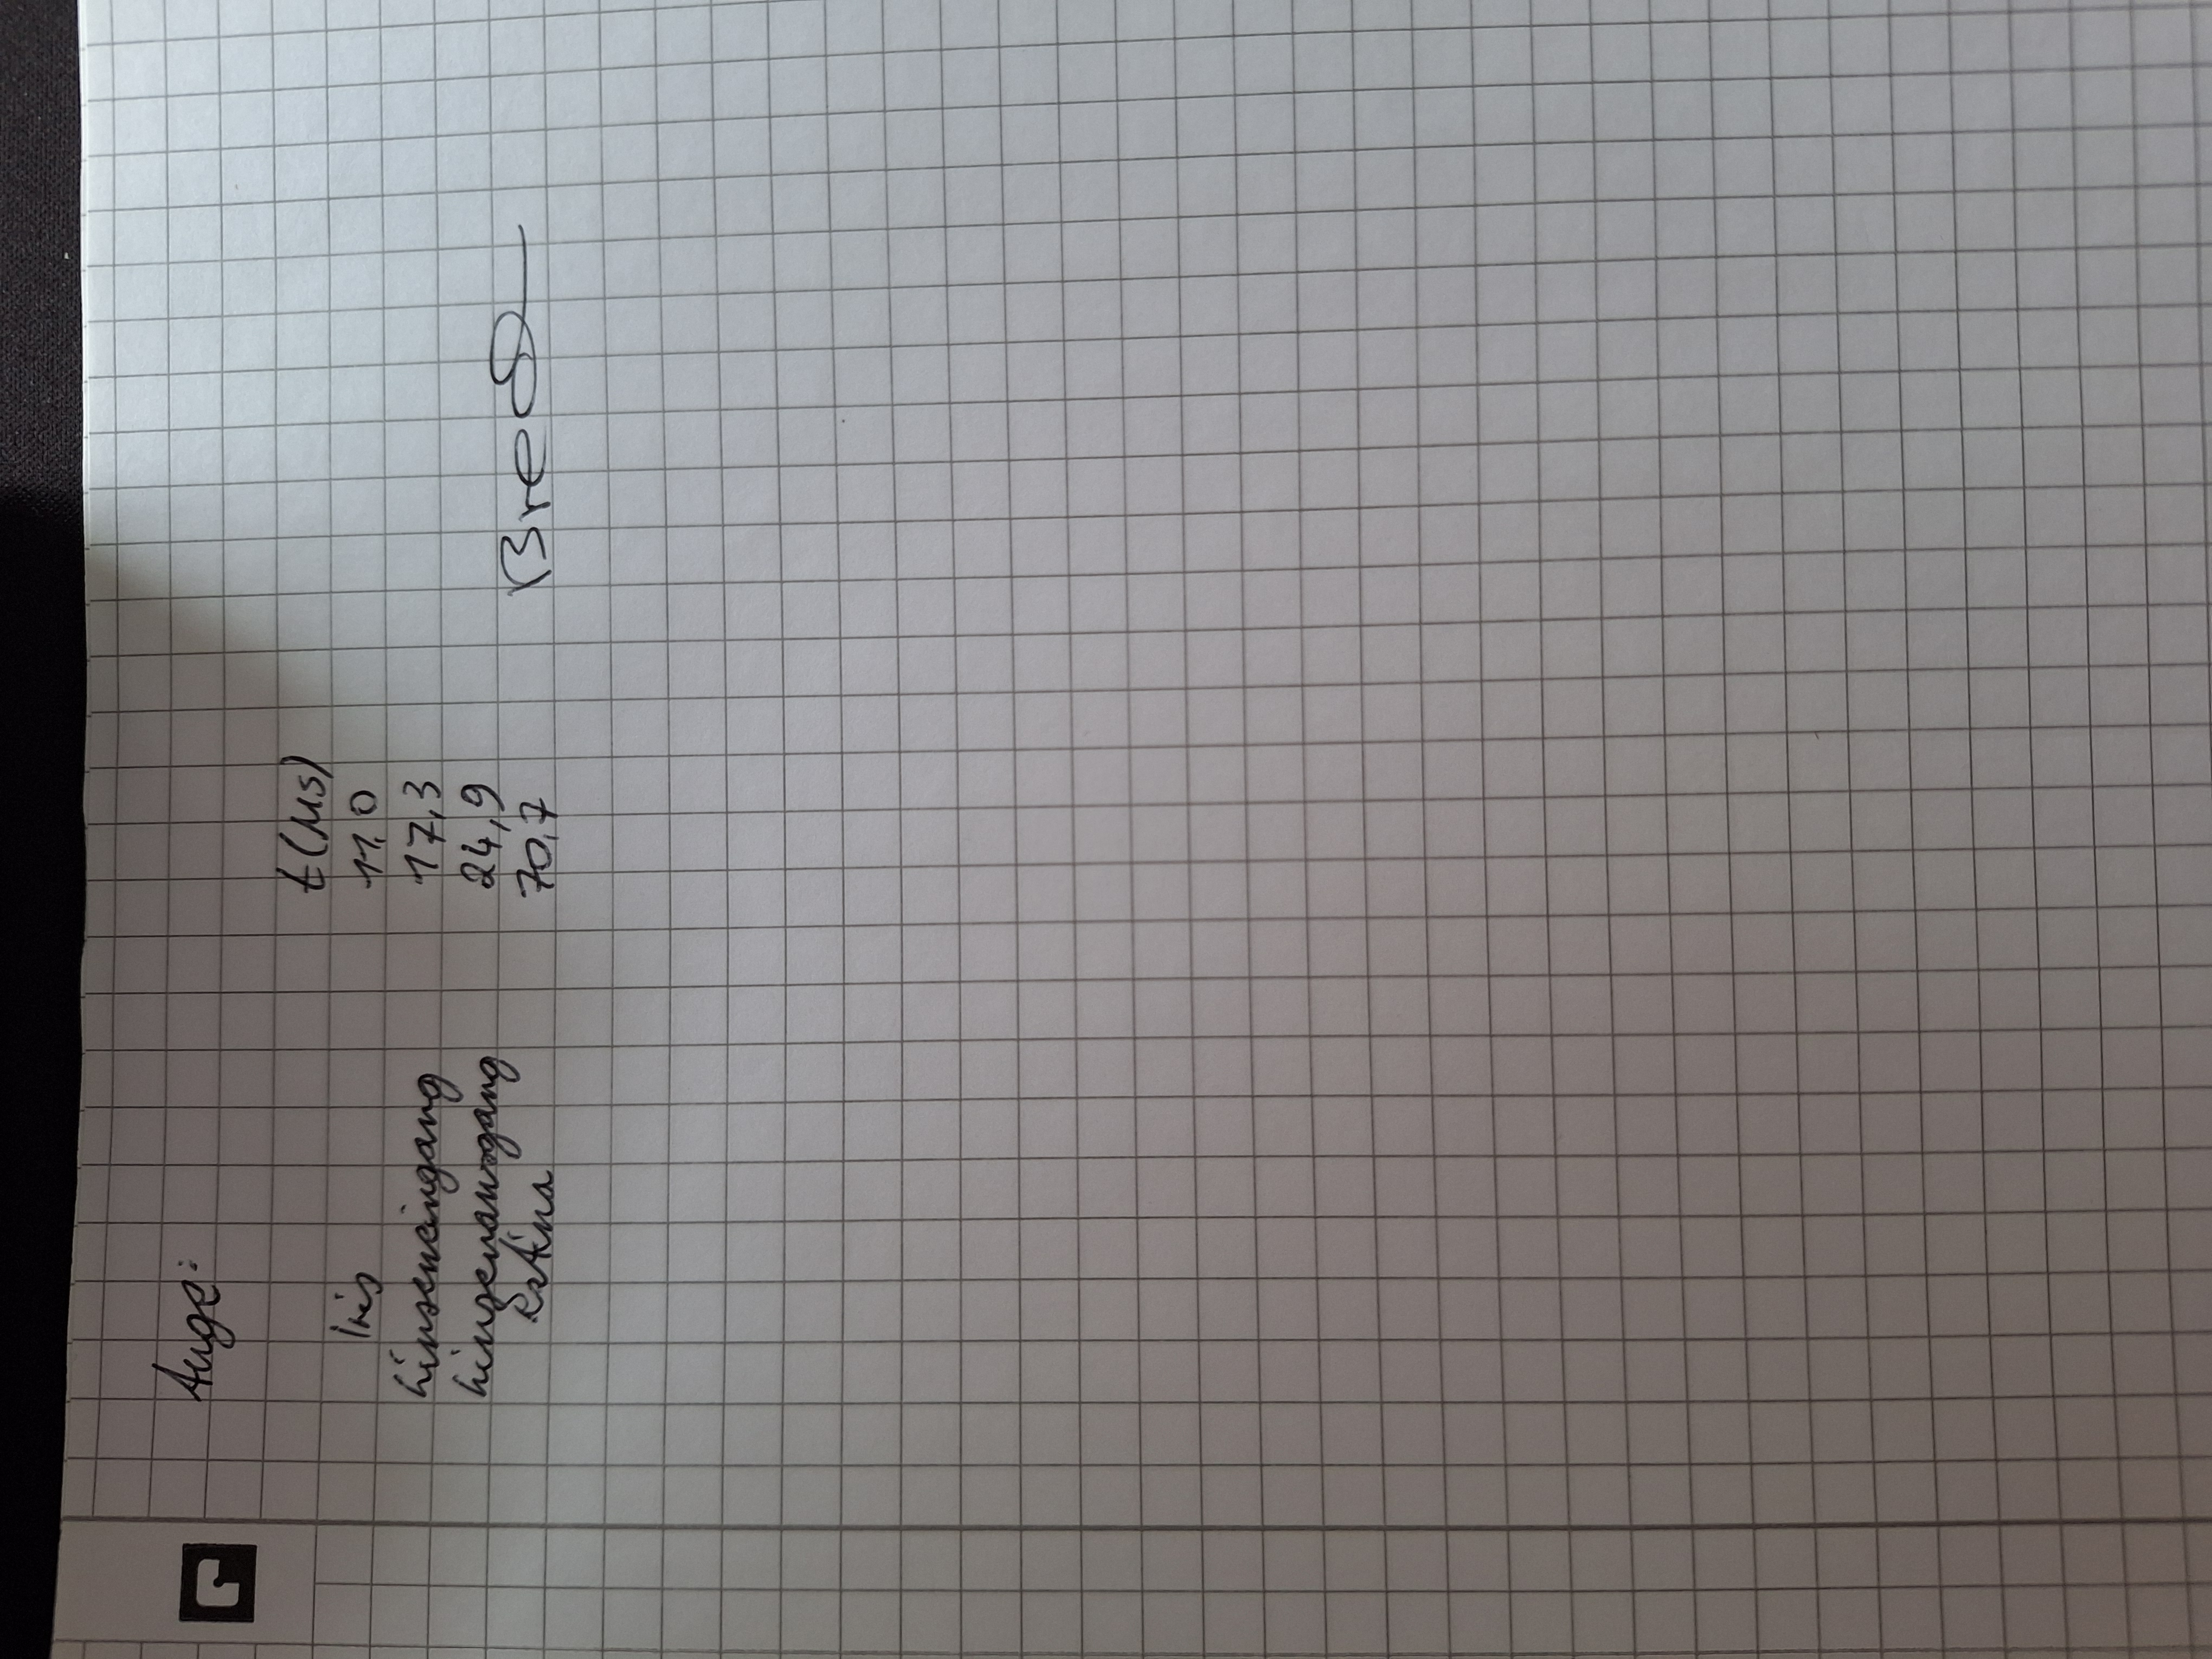 Auge:
t(μs)
Iris 11,0
Linseneingang 17,3
Linsenausgang 24,9
Retina 70,7